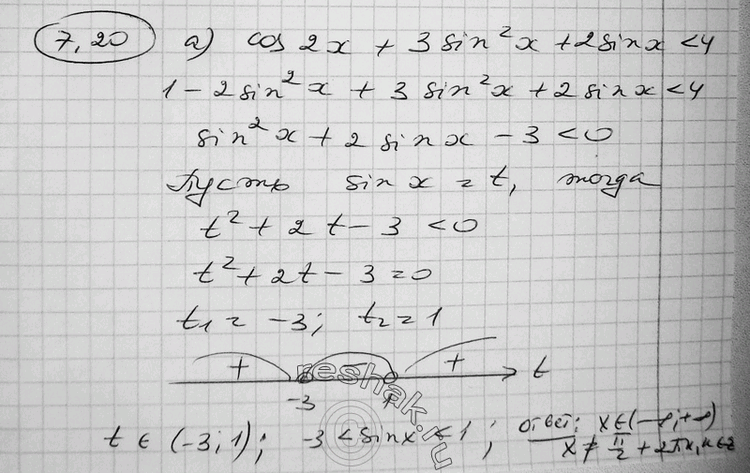 7,20 а) cos 2x + 3 sin²x + 2 sin x < 4
1 − 2 sin²x + 3 sin²x + 2 sin x < 4
sin²x + 2 sin x − 3 < 0
Пусть sin x = t, тогда
t² + 2t − 3 < 0
t² + 2t − 3 = 0
t₁ = −3; t₂ = 1
+ − + t
−3 1
reshak.ru
t ∈ (−3; 1); −3 < sin x < 1; ответ: x ∈ (−∞; +∞)
x ≠ π/2 + 2πn, n ∈ z